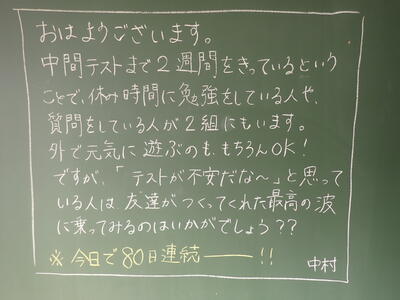 おはようございます。
中間テストまで2週間をきっているという
ことで、休み時間に勉強をしている人や、
質問をしている人が2組にもいます。
外で元気に遊ぶのも、もちろんOK!
ですが、「テストが不安だな〜」と思って
いる人は、友達がつくってくれた最高の波
に乗ってみるのはいかがでしょう??
※今日で80日連続――!!
中村